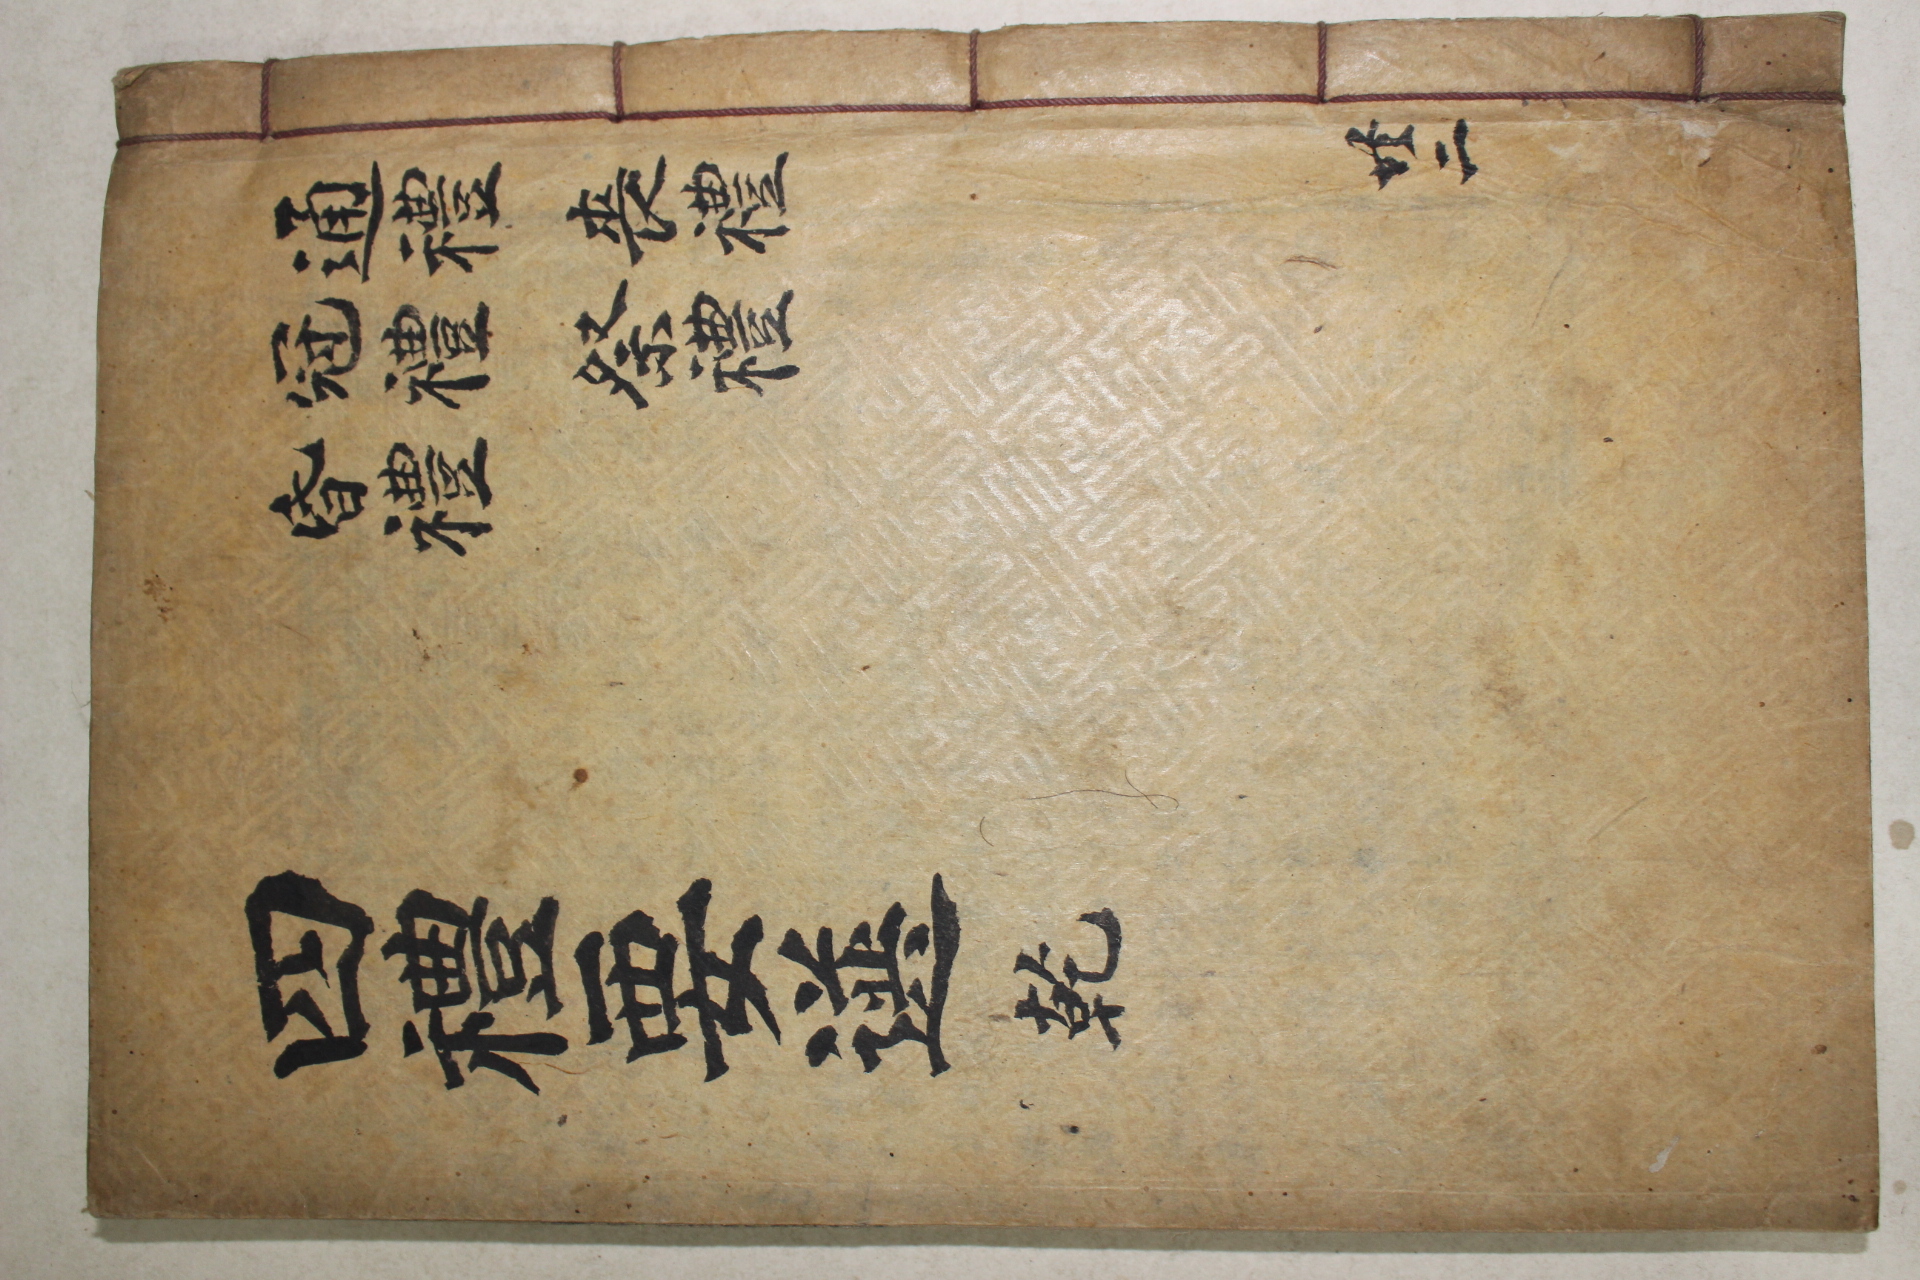 通禮 喪禮
冠禮 祭禮
昏禮
四禮要選 乾
二